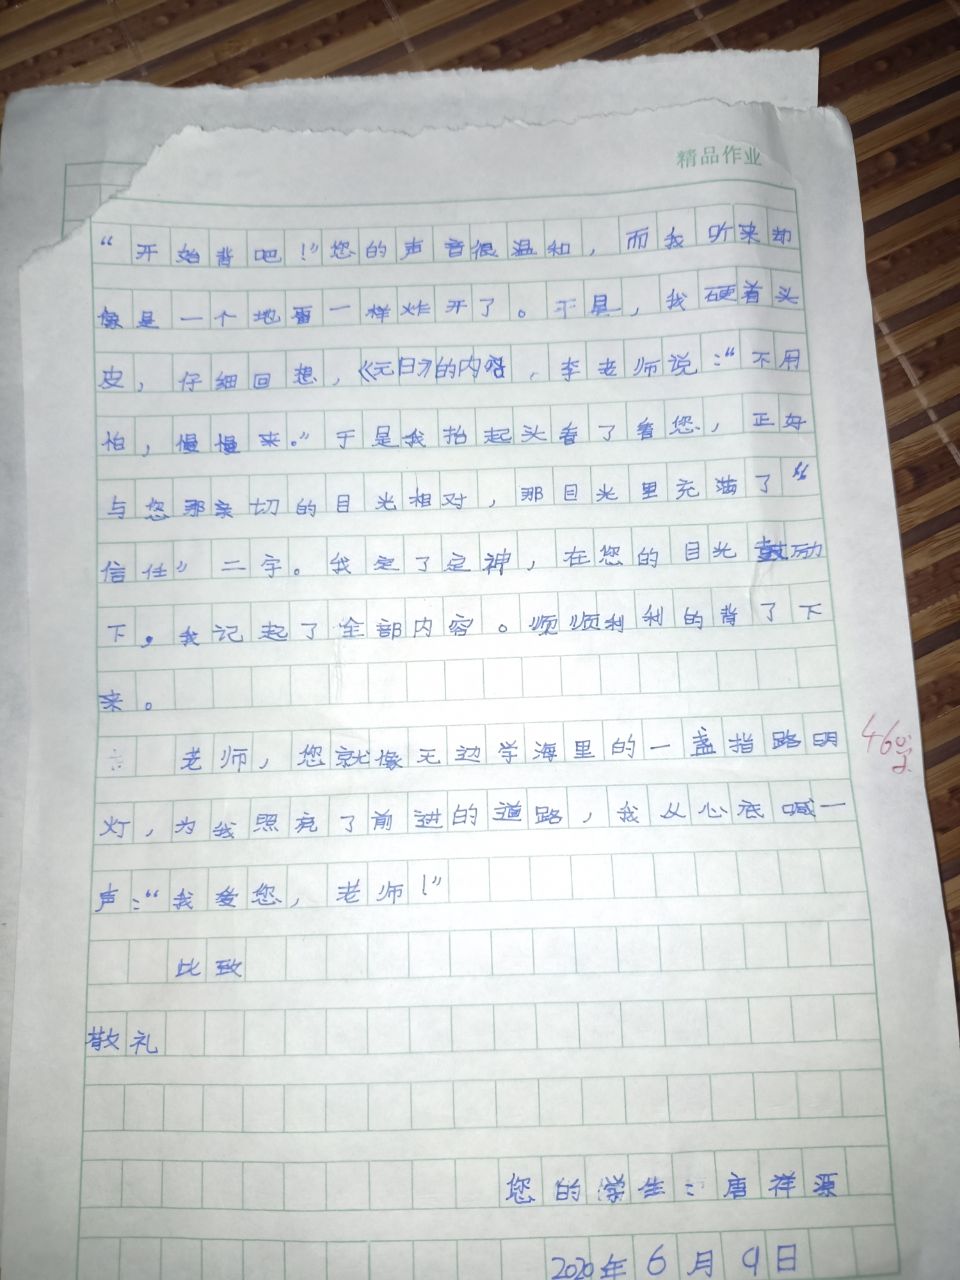 精品作业
“开始背吧！”您的声音很温和，而我听来却
像是一个地雷一样炸开了。于是，我硬着头
皮，仔细回想，《元日》的内容，李老师说：“不用
怕，慢慢来。”于是我抬起头看了看您，正好
与您那亲切的目光相对，那目光里充满了“
信任”二字。我定了定神，在您的目光鼓励
下，我记起了全部内容。顺顺利利的背了下
来。
老师，您就像无边学海里的一盏指路明
灯，为我照亮了前进的道路，我从心底喊一
声：“我爱您，老师！”
46分
比致
敬礼
您的学生：唐祥源
2020年6月9日